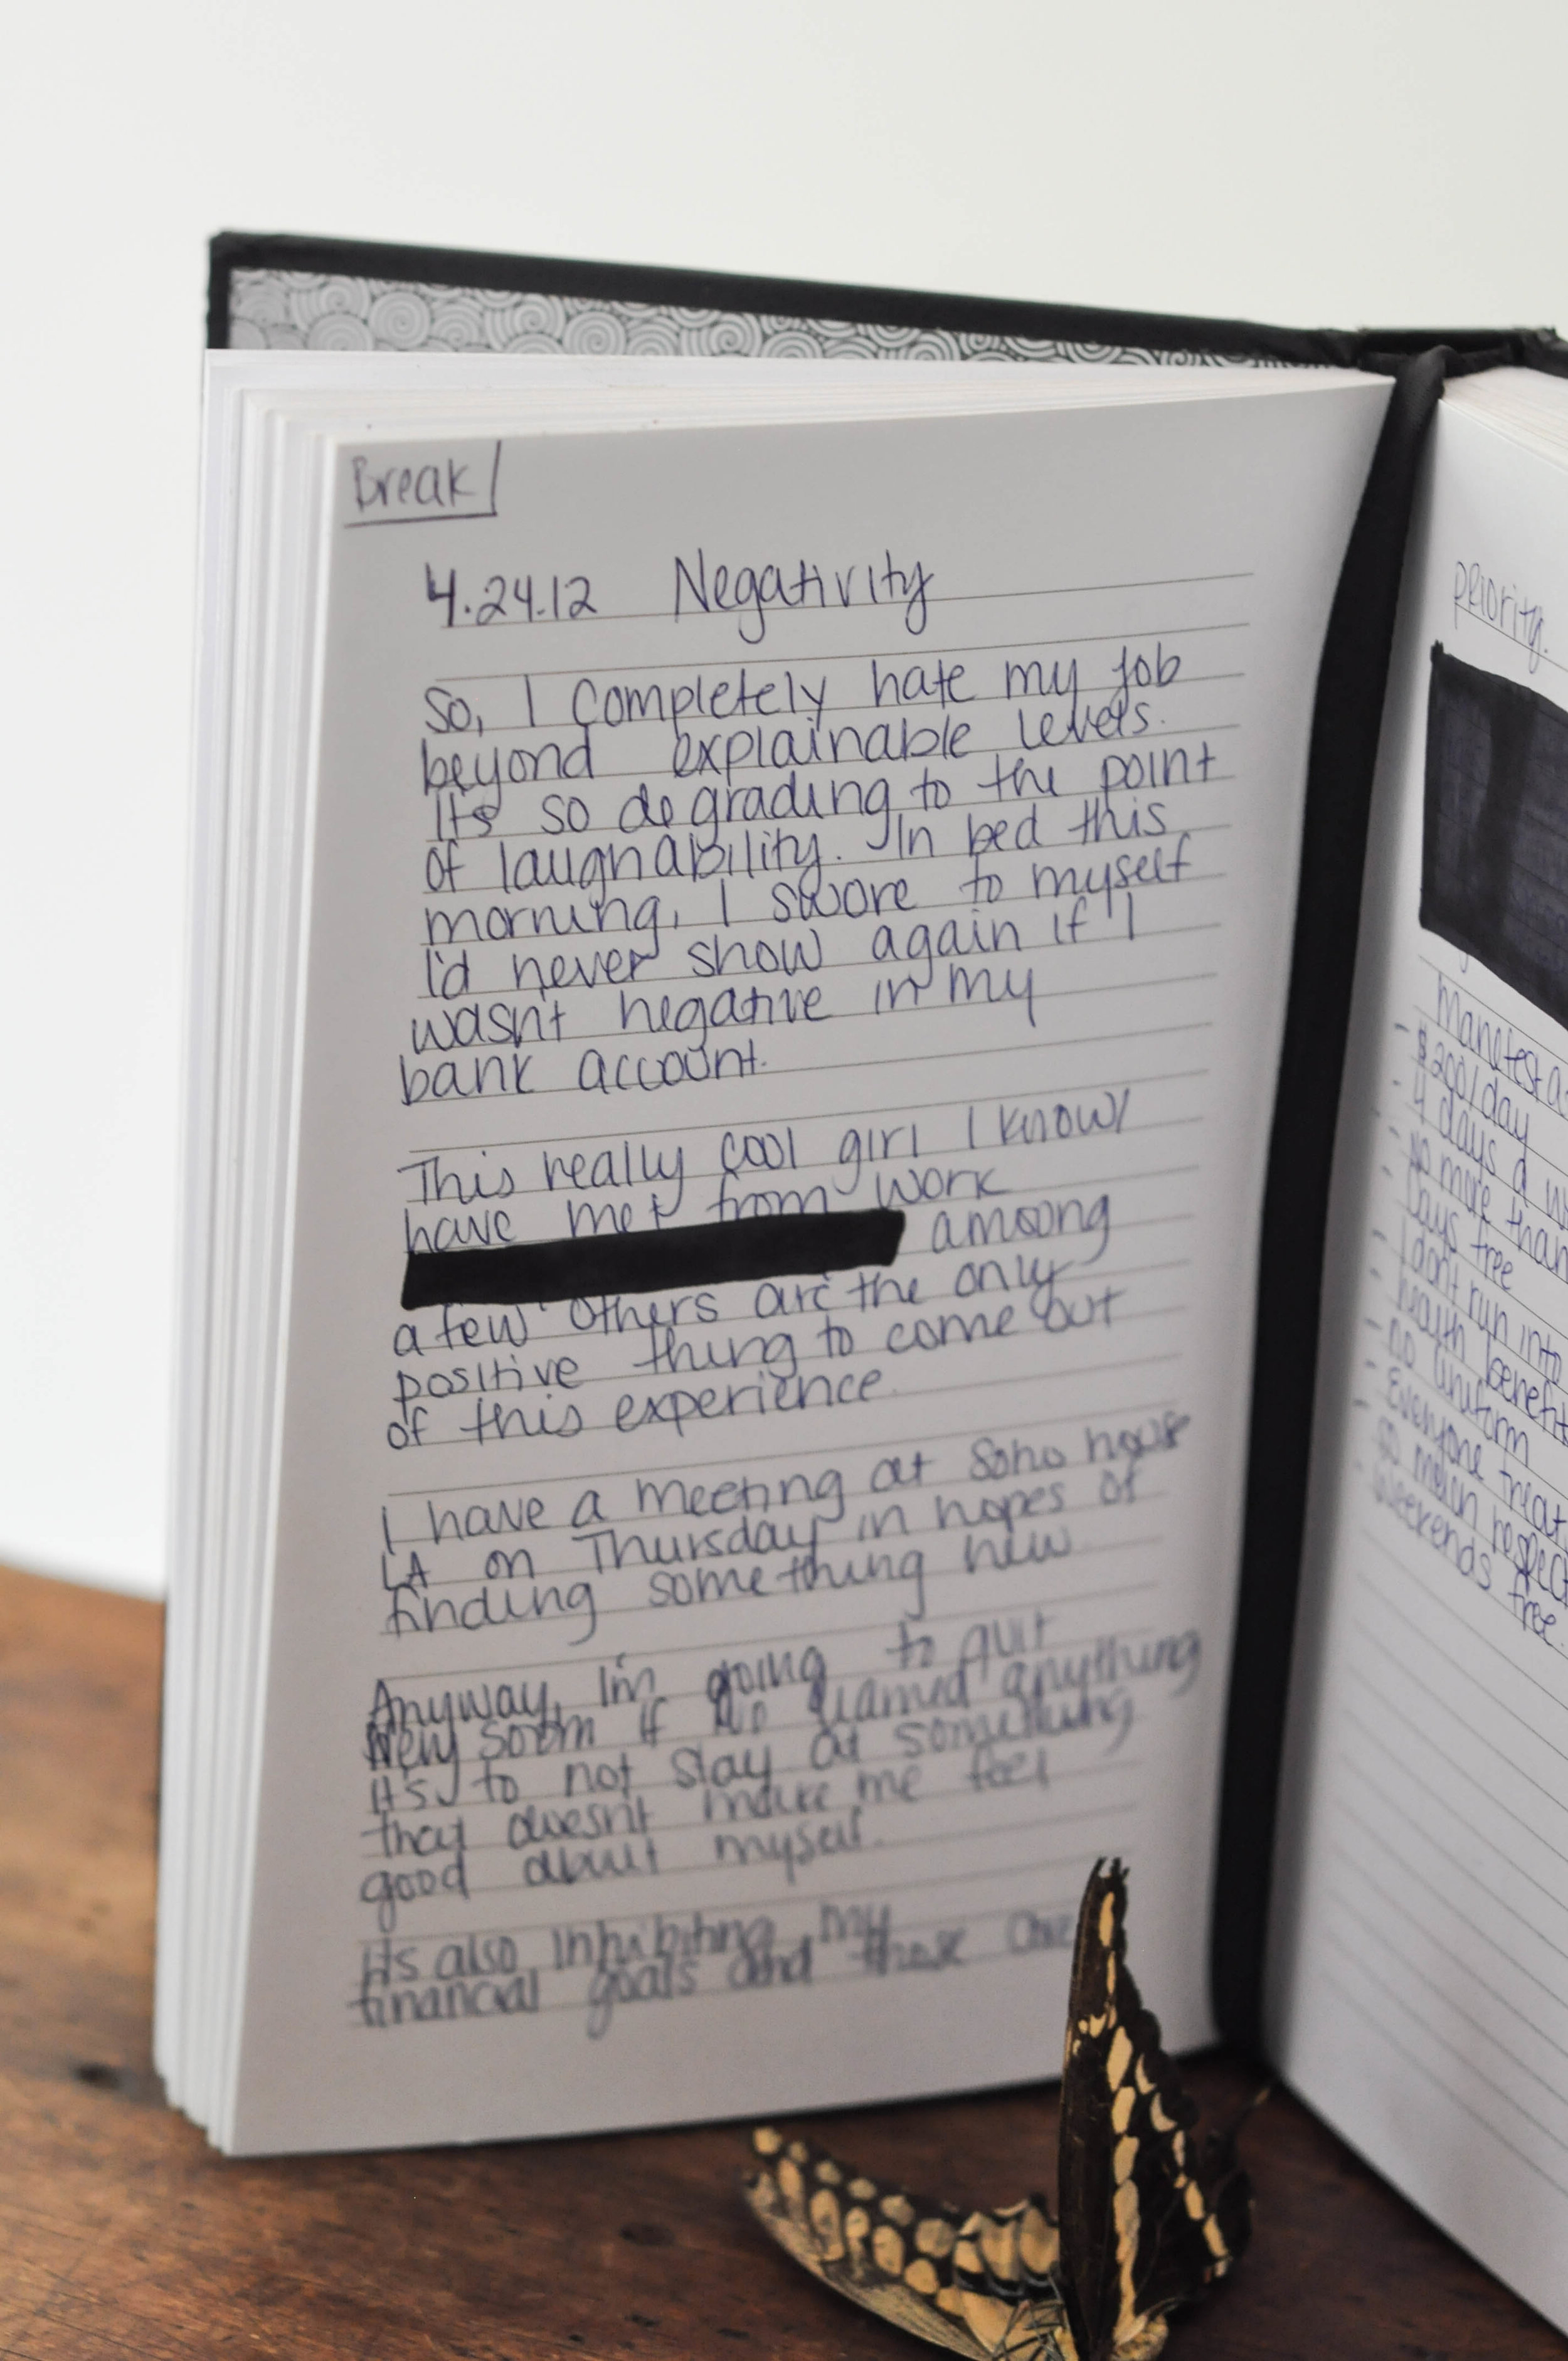 Break
4.24.12 Negativity
So, I completely hate my job
beyond explainable levels.
Its so degrading to the point
of laughability. In bed this
morning, I swore to myself
I'd never show again if I
wasn't negative in my
bank account.
This really cool girl I know/
have met from work
among
a few others are the only
positive thing to come out
of this experience.
I have a meeting at Soho house
LA on Thursday in hopes of
finding something new.
Anyway, I'm going to quit
very soon if learned anything
it's to not stay at something
that doesn't make me feel
good about myself.
Its also inhibiting my
financial goals and those
priority.
$200/day
4 days a
no more than
Days free
I don't run into
health benefits
no uniform
Everyone treat
so much respect
Weekends free.